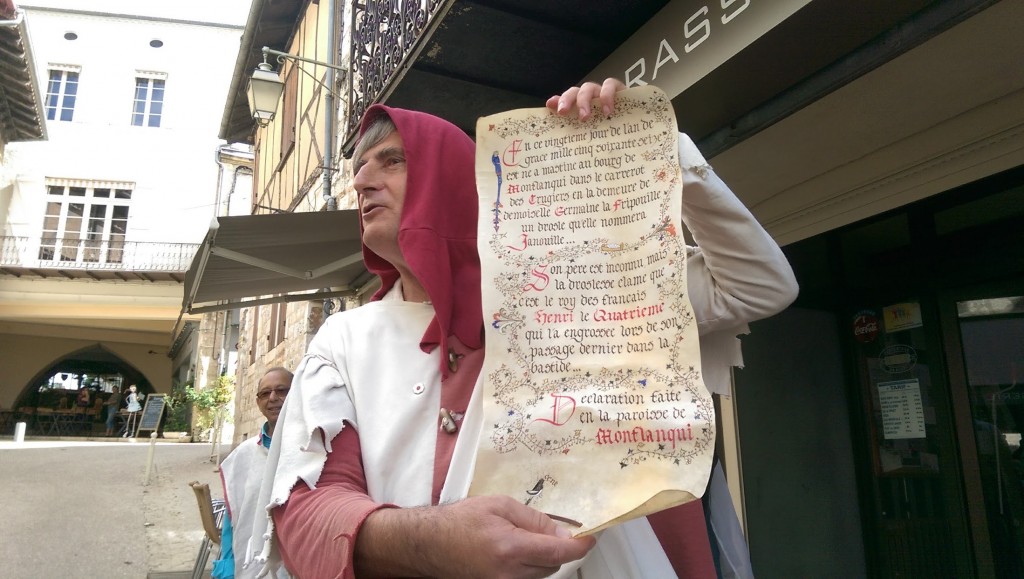 RASS
En ce vingtieme jour de lan de
grace mille cinq soixante
est né a matine au bourg de
Monflanqui dans le carrerot
des Trugiers en la demeure de
demoiselle Germaine la Fripouille
un drosle quelle nommera
Janouille...
Son pere est inconnu mais
la droslesse clame que
c'est le roy des francais
Henri le Quatrieme
qui la engrossee lors de son
passage dernier dans la
bastide...
Declaration faite
en la paroisse de
Monflanqui
Coca-Cola
TARIF